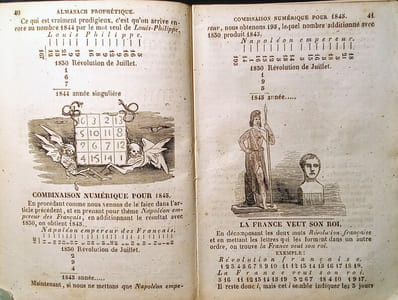 40
ALMANACH PROPHÉTIQUE.
Ce qui est vraiment prodigieux, c'est qu'on arrive en-
core au nombre 1844 par le mot seul de Louis-Philippe.
Louis Philippe
1830 Révolution de Juillet.
1
6
7
1844 année singulière
3 13 3
5 10 11 8
9 6 7 12
4 15 14 1
COMBINAISON NUMÉRIQUE POUR 1843.
En procédant comme nous venons de le faire dans l'ar-
ticle précédent, et en prenant pour thème Napoléon em-
pereur des Français, en additionnant le résultat avec
1830, on obtient 1843.
Napoléon empereur des Français.
1830 Révolution de Juillet.
2
9
4
1843 année.....
Maintenant, si nous ne mettons que Napoléon empe-
COMBINAISON NUMÉRIQUE POUR 1845.
41
reur, nous obtenons 195, lequel nombre additionné avec
1830 produit 1845.
Napoléon empereur.
1830 Révolution de Juillet.
1
9
5
1845 année.....
LA FRANCE VEUT SON ROI.
En décomposant les deux mots Révolution française
et en mettant les lettres qui les forment dans un autre
ordre, on trouve la France veut son roi.
EXEMPLE:
Révolution française.
1 2 3 4 5 6 7 8 9 10 11 12 13 14 15 16 17 18 19
La France veut son roi.
Il reste donc i, mais cet i semble indiquer les 5 jours